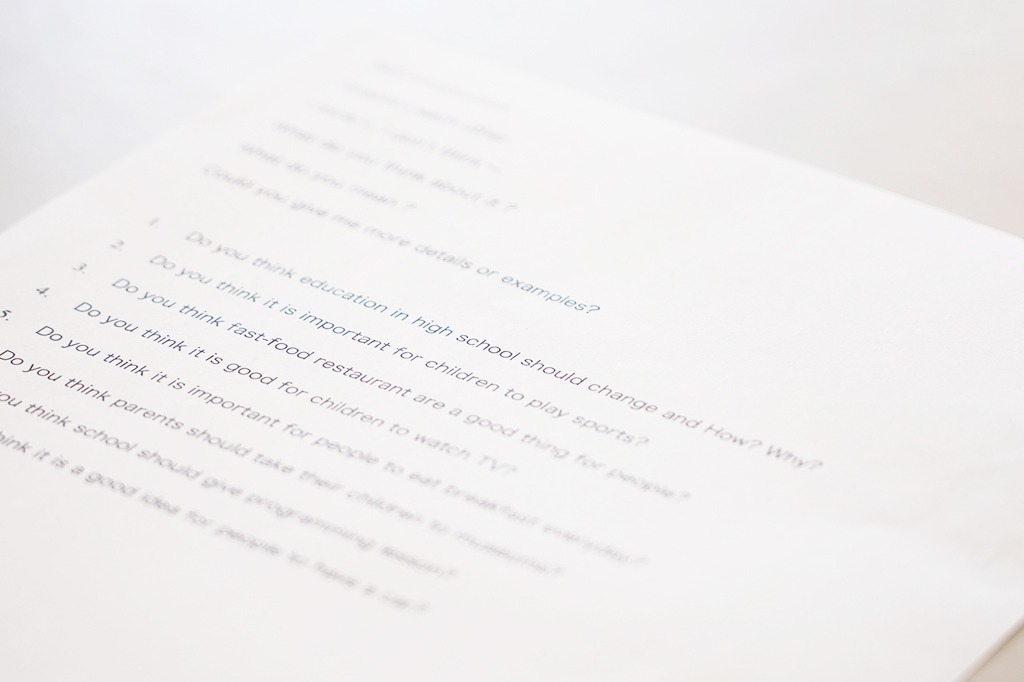 What do you think about it ?
What do you mean ?
Could you give me more details or examples?
1. Do you think education in high school should change and How? Why?
2. Do you think it is important for children to play sports?
3. Do you think fast-food restaurant are a good thing for people?
4. Do you think it is good for children to watch TV?
5. Do you think it is important for people to eat breakfast everyday?
Do you think parents should take their children to museums?
you think school should give programming lesson?
think it is a good idea for people to have a